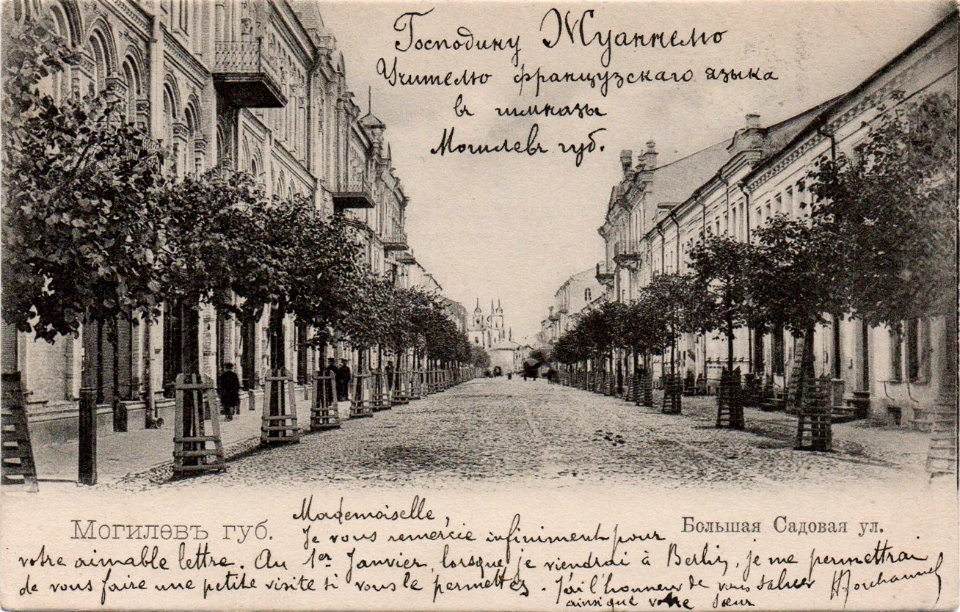 Господину Жуаннелю
Учителю французскаго языка
въ гимназы
Могилевъ губ.
Могилевъ губ.
Большая Садовая ул.
Mademoiselle,
Je vous remercie infiniment pour
votre aimable lettre. Au 1er Janvier, lorsque je viendrai à Berlin, je me permettrai
de vous faire une petite visite si vous le permettez. J'ai l'honneur de vous saluer
ainsi que votre sœur